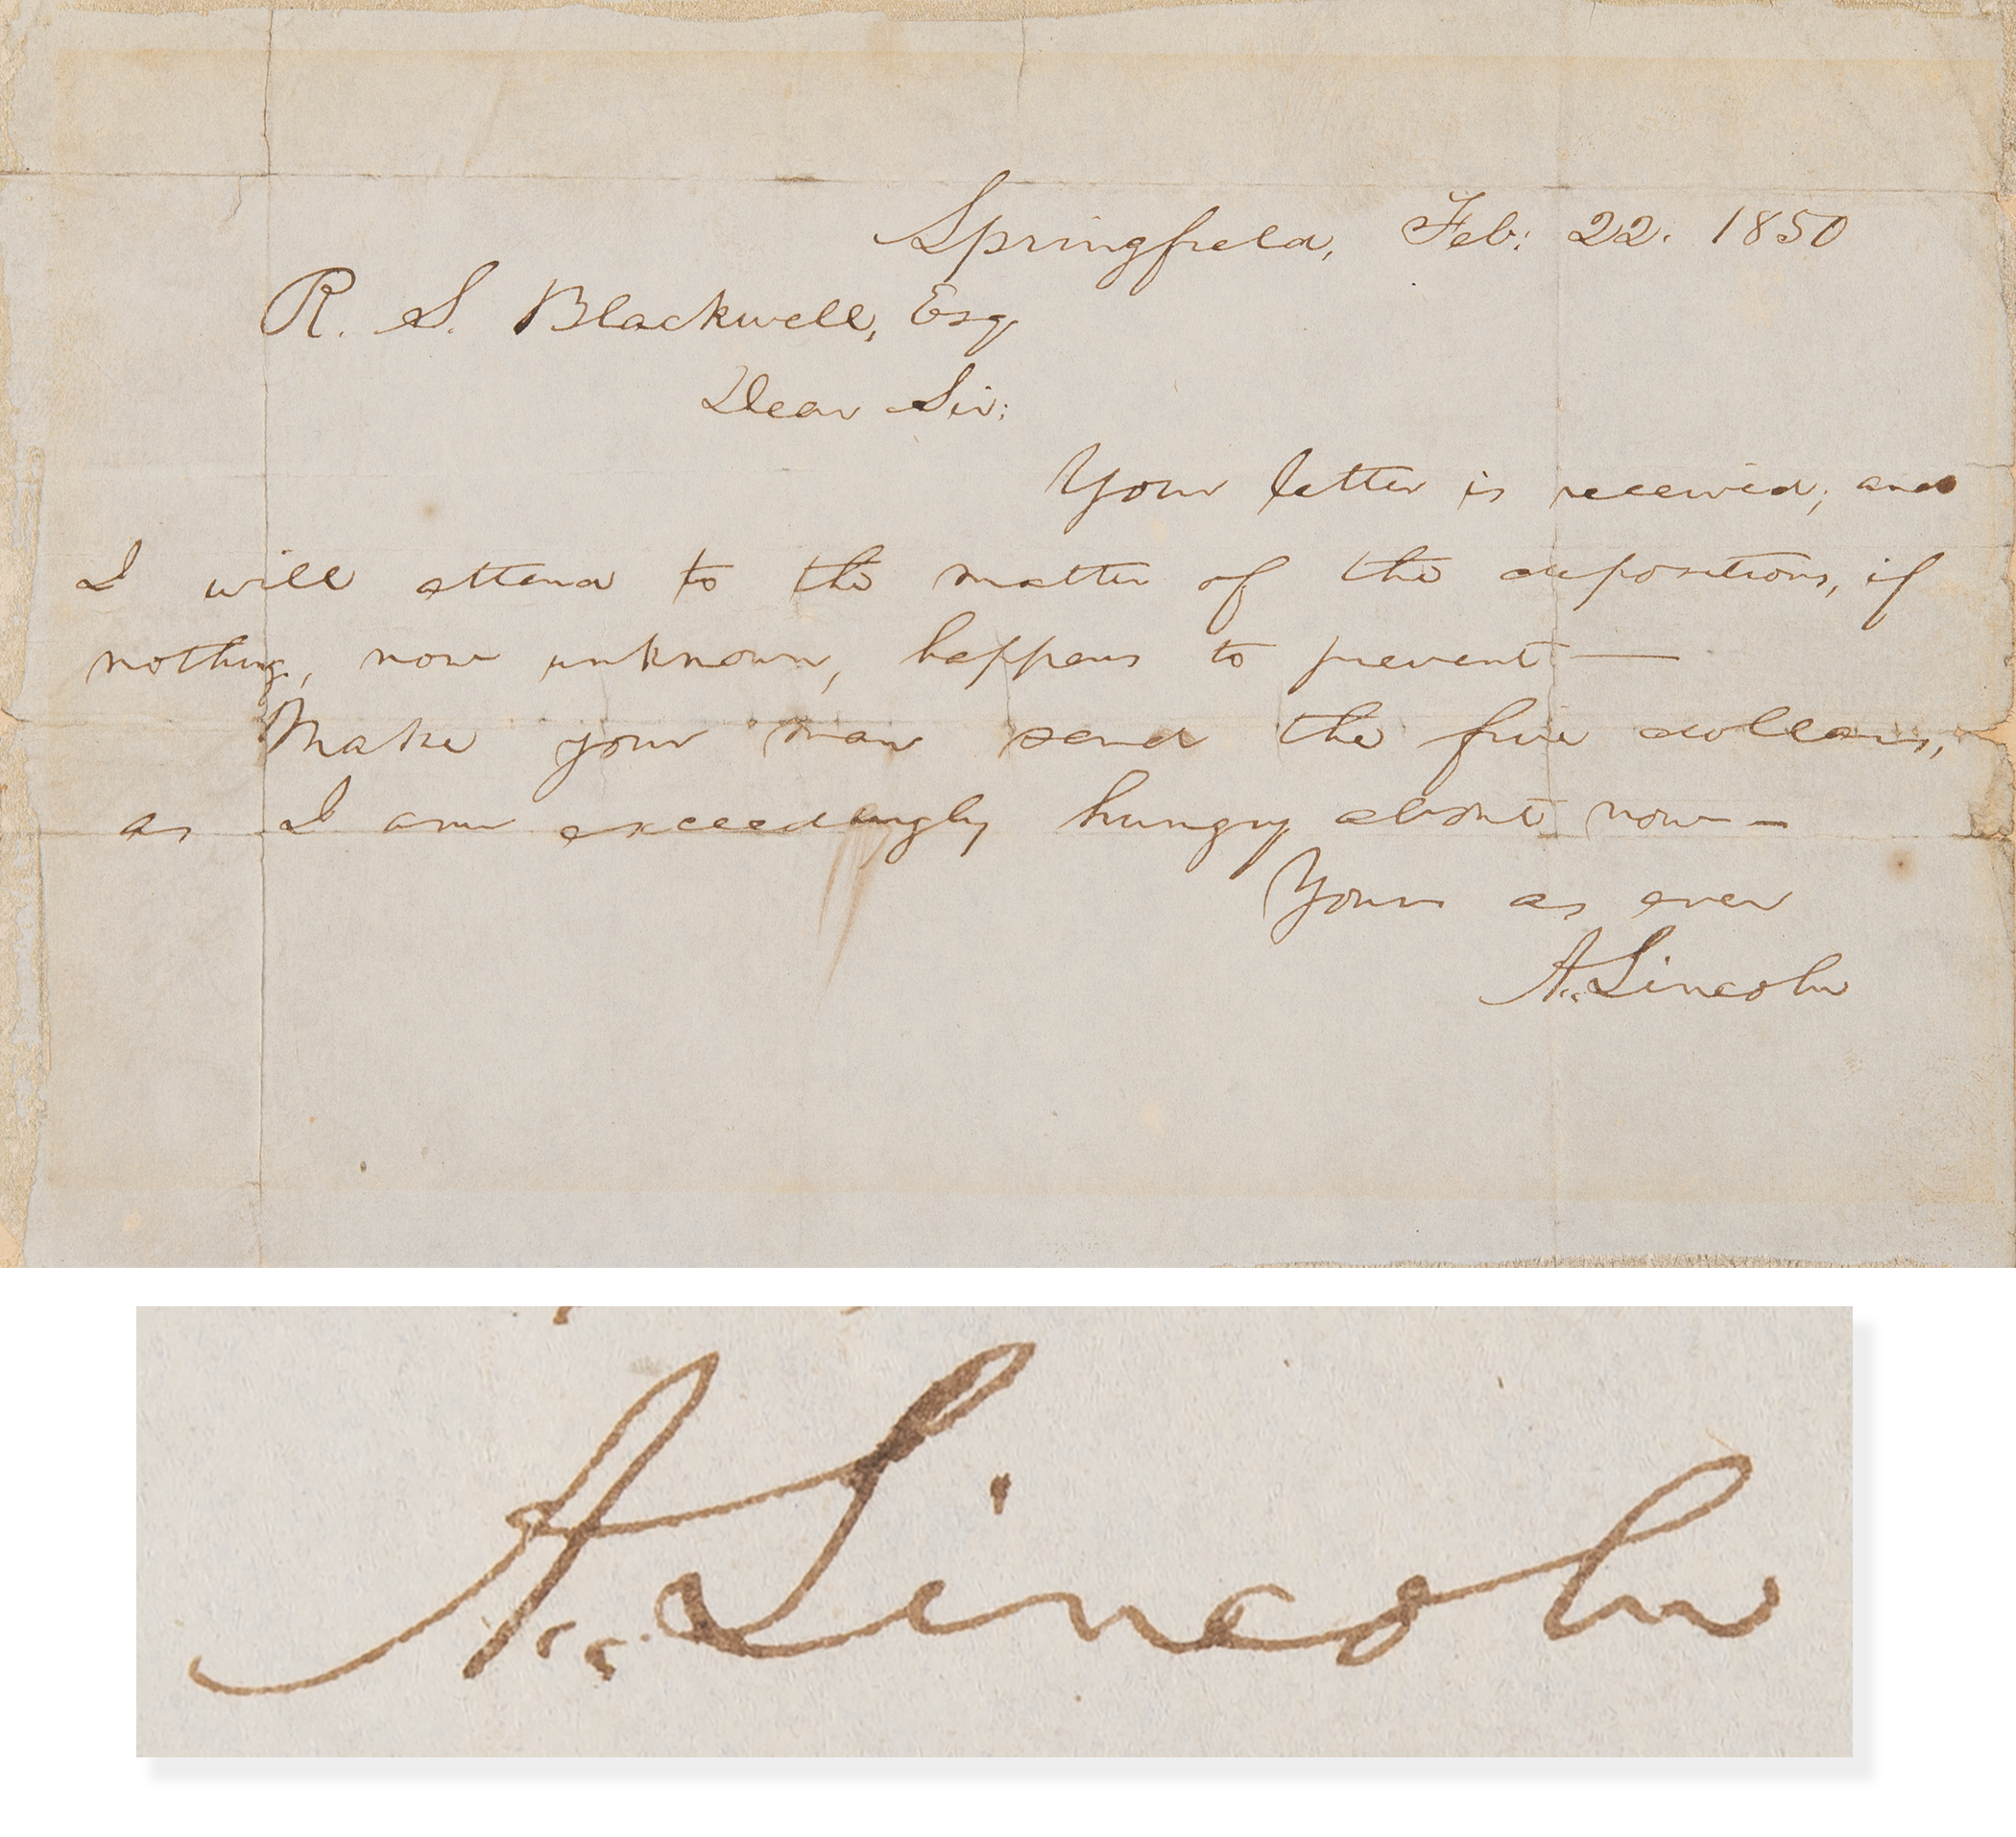 Springfield, Feb: 22. 1850
R. S. Blackwell, Esq
Dear Sir:
Your letter is received; and
I will attend to the matter of the depositions, if
nothing, now unknown, happens to prevent—
Make your man send the five dollars,
as I am exceedingly hungry about now—
Yours as ever
A. Lincoln
A. Lincoln